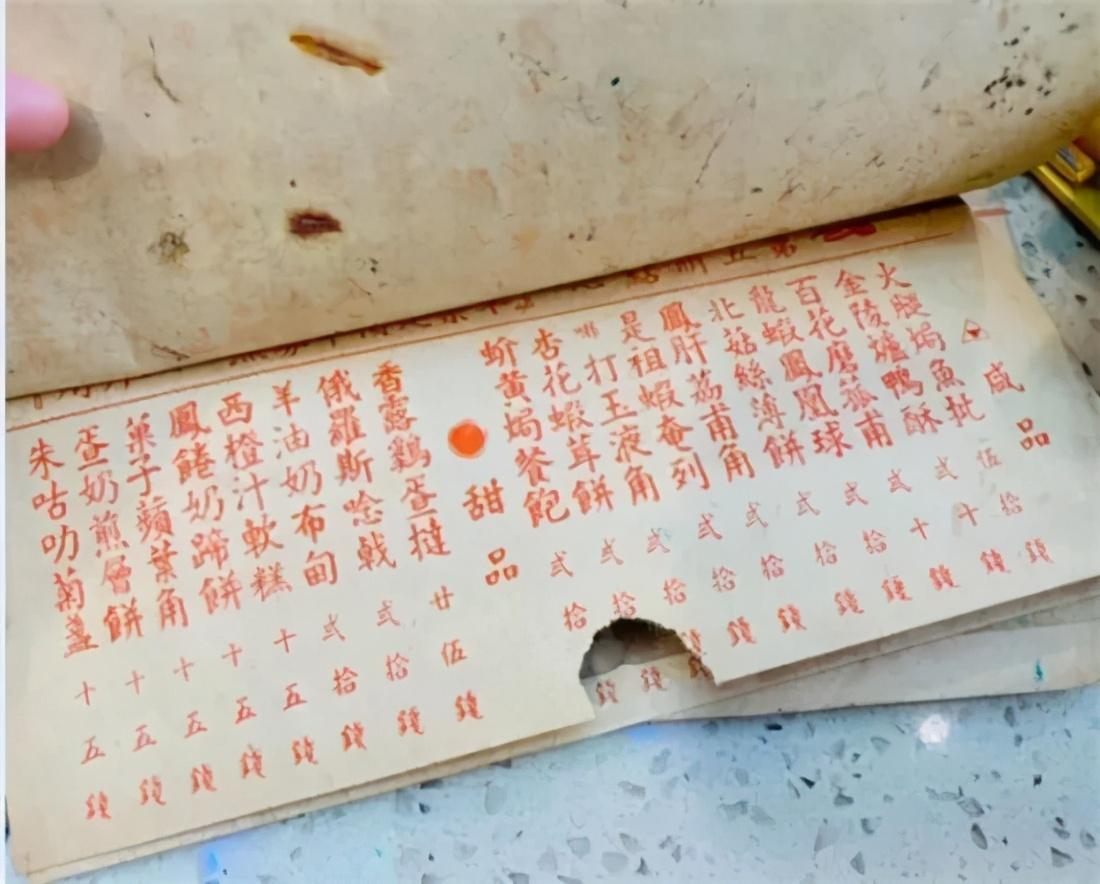 咸品
火腿焗魚批 伍拾錢
金陵爐鴨酥 弍十錢
百花磨菰甫 弍十錢
龍蝦鳳凰球 弍拾錢
北菇絲薄餅 弍拾錢
鳳肝荔甫角 弍拾錢
是祖蝦奄列 弍拾錢
打玉液角 弍拾錢
杏花蝦茸餅 弍拾錢
蚧黃焗餐飽 弍拾錢
甜品
香露鷄疍撻 廿伍錢
俄羅斯唸戟 弍拾錢
羊油奶布甸 弍拾錢
西橙汁軟糕 十五錢
鳳奶蹄餅 十五錢
菓子蘋葉角 十五錢
疍奶煎層餅 十五錢
朱咕叻菊盞 十五錢